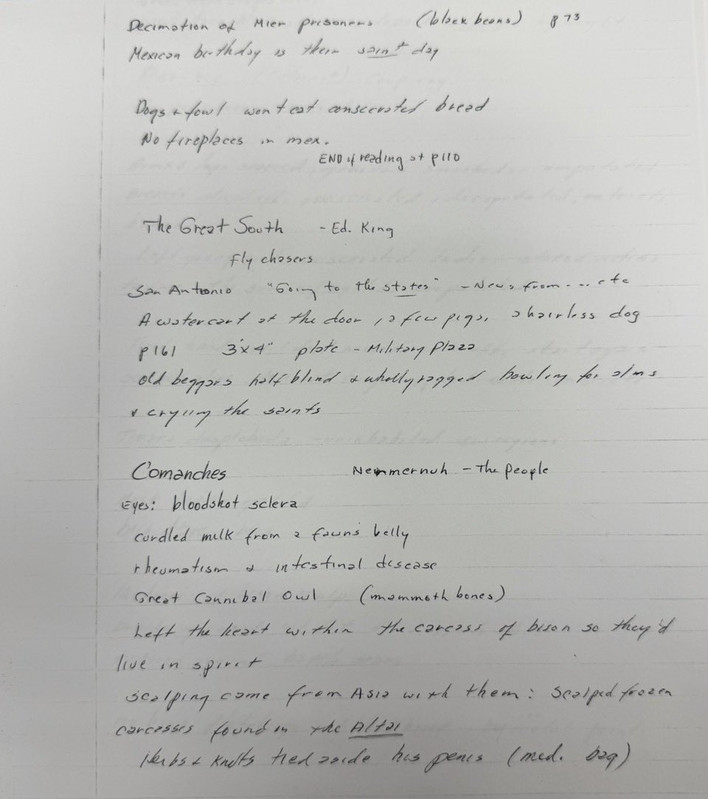 Decimation of Mier prisoners (black beans) p 73
Mexican birthday is their saint day
Dogs & fowl wont eat consecrated bread
No fireplaces in mex.
END of reading at p110
The Great South - Ed. King
fly chasers
San Antonio "Going to the states" - News from ... etc
A watercart at the door, a few pigs, a hairless dog
p 161 3"x4" plate - Military Plaza
old beggars half blind & wholly ragged howling for alms
& crying the saints
Comanches Nermernuh - The people
Eyes: bloodshot sclera
curdled milk from a fawn's belly
rheumatism & intestinal disease
Great Cannibal Owl (mammoth bones)
Left the heart within the carcass of bison so they'd
live in spirit
scalping came from Asia with them: Scalped frozen
carcasses found in the Altai
Herbs & knotts tied aside his penis (med. bag)